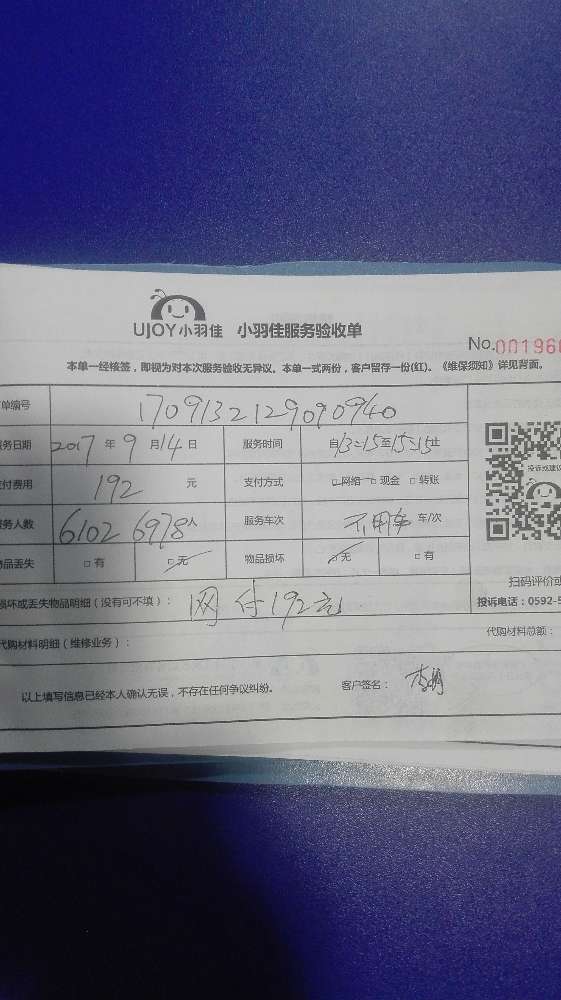 UJOY小羽佳 小羽佳服务验收单
No.001966
本单一经核签，即视为对本次服务验收无异议。本单一式两份，客户留存一份(红)。《维保须知》详见背面。
单编号 1709132129090940
务日期 2017 年 9 月 14 日 服务时间 自13:15至15:15止
付费用 192 元 支付方式 □网络 □现金 □转账
务人数 6102 6978人 服务车次 不用车 车/次
投诉或建议
物品丢失 □有 □无 物品损坏 □无 □有
扫码评价或
损坏或丢失物品明细（没有可不填）： 网付192元
投诉电话：0592-5
代购材料明细（维修业务）：
代购材料总额：
以上填写信息已经本人确认无误，不存在任何争议纠纷。 客户签名：